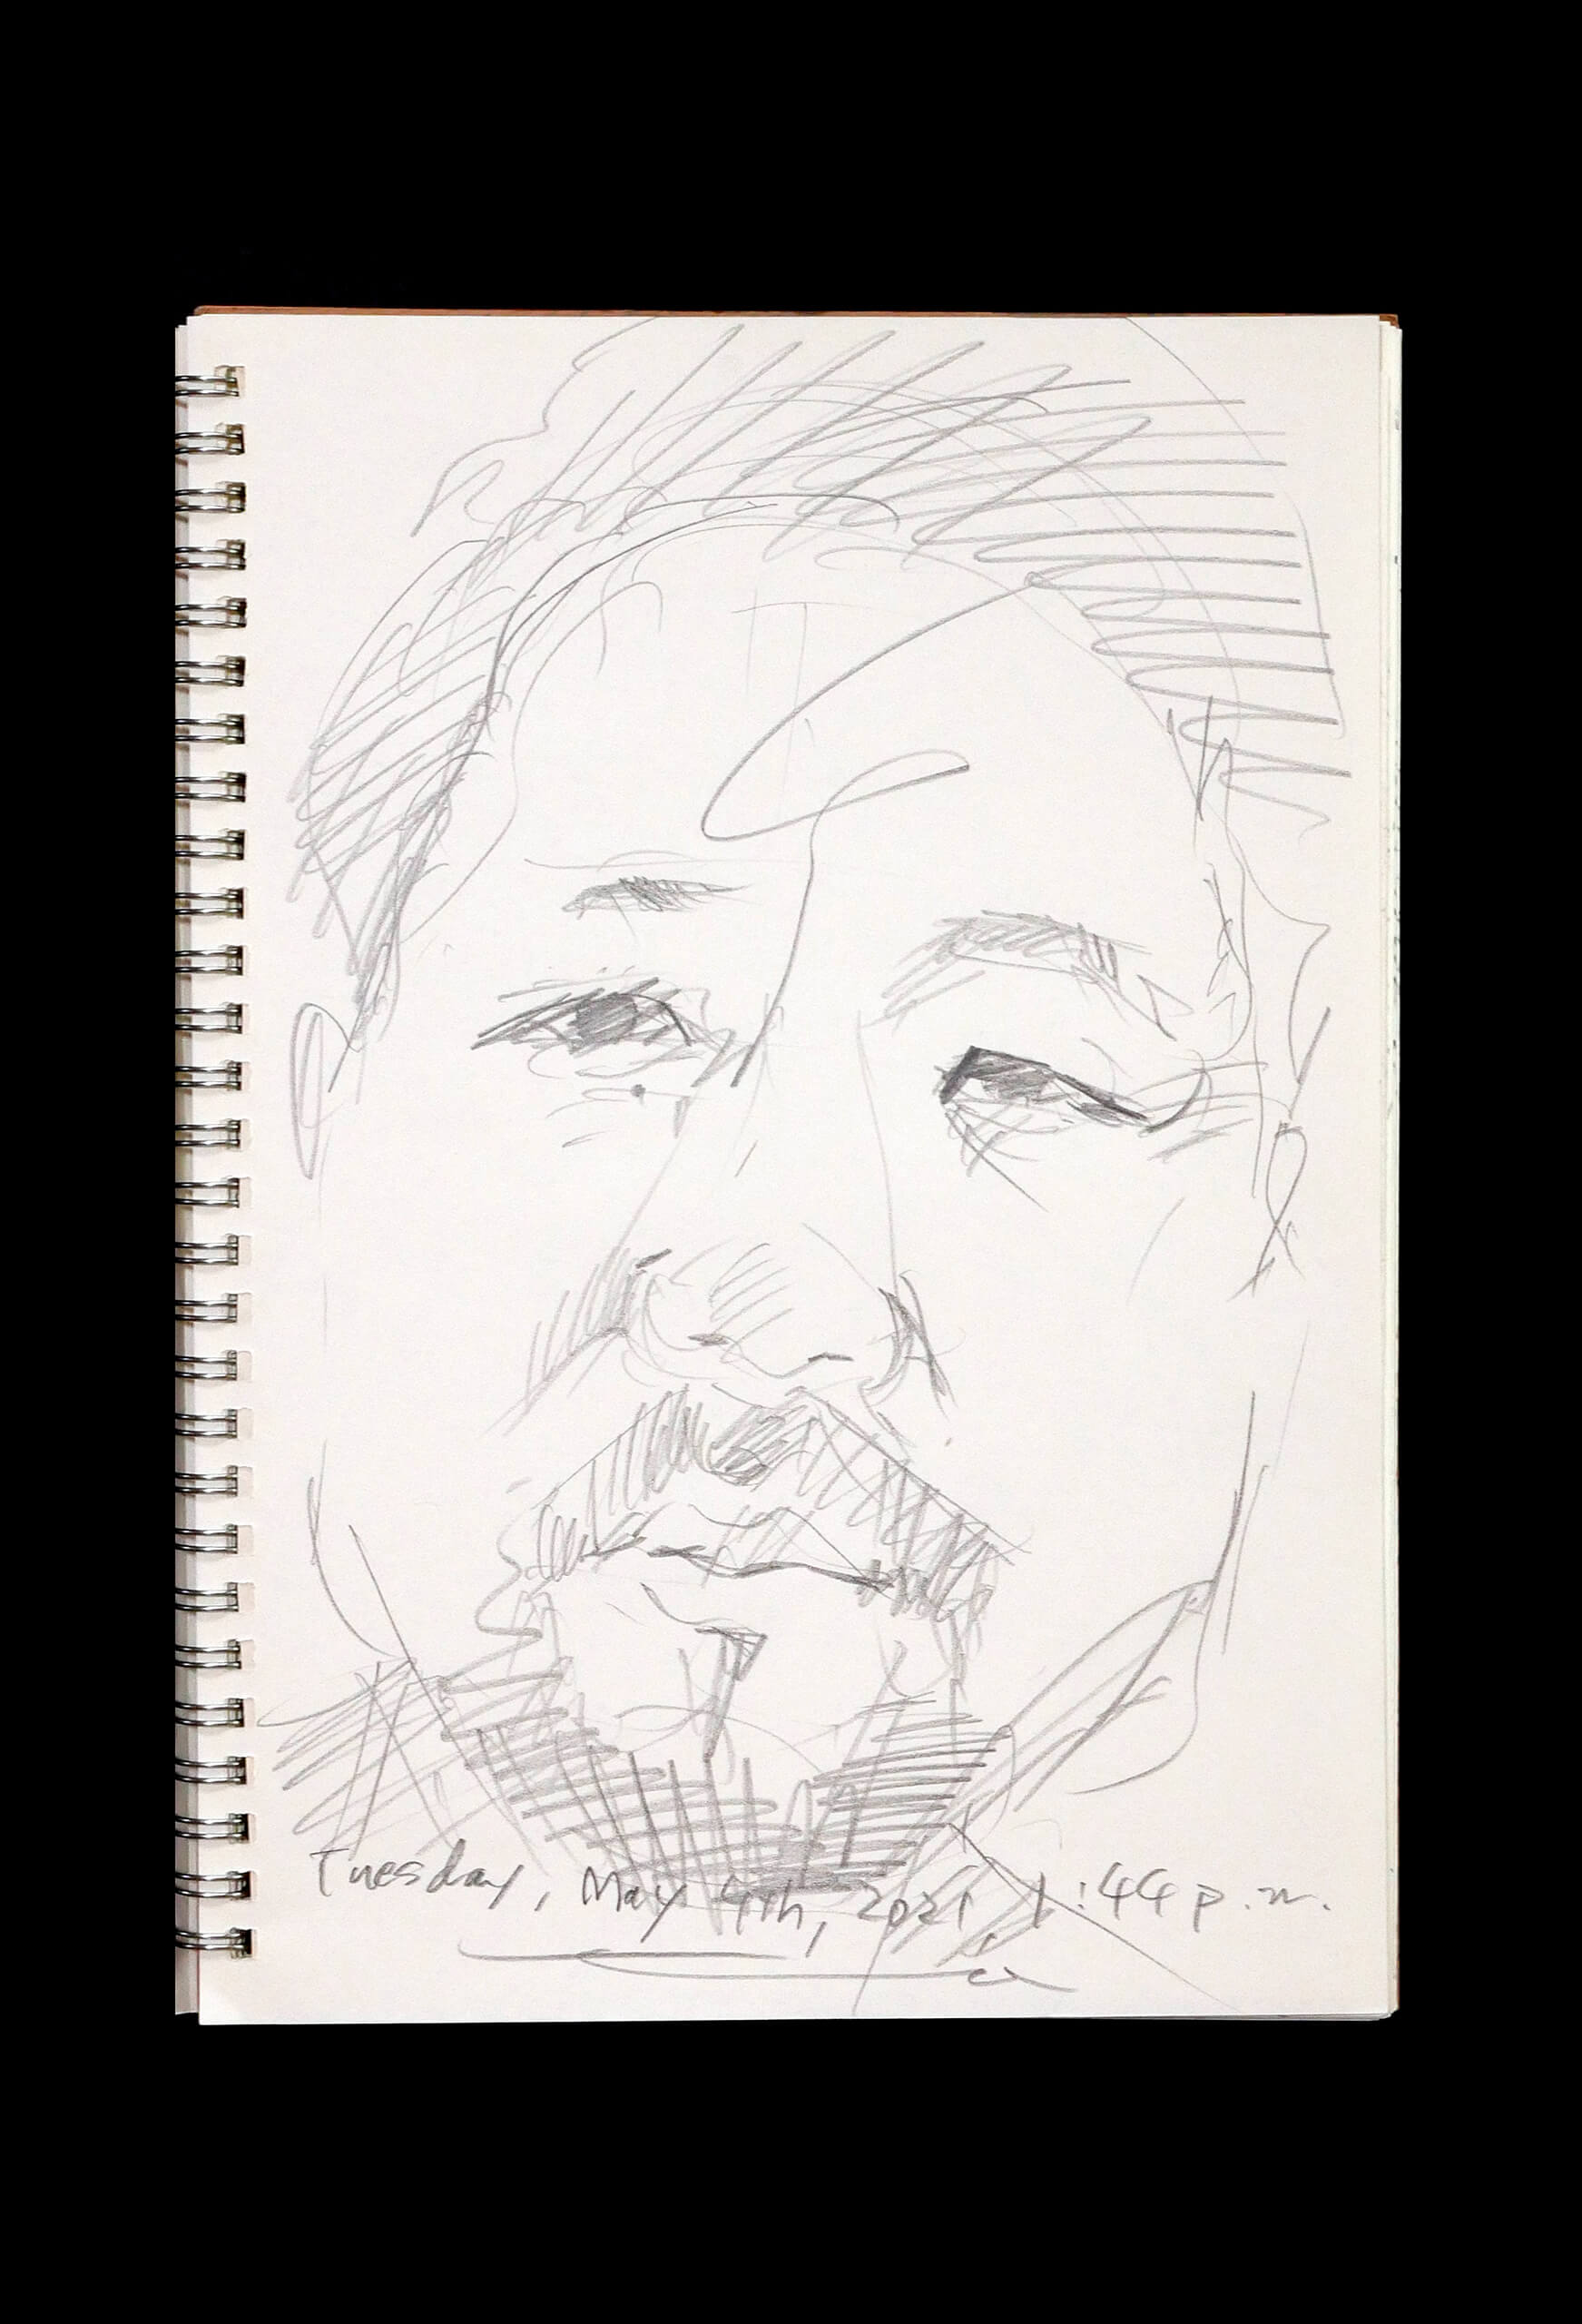 Tuesday, May 4th, 2021 1:44 p.m.